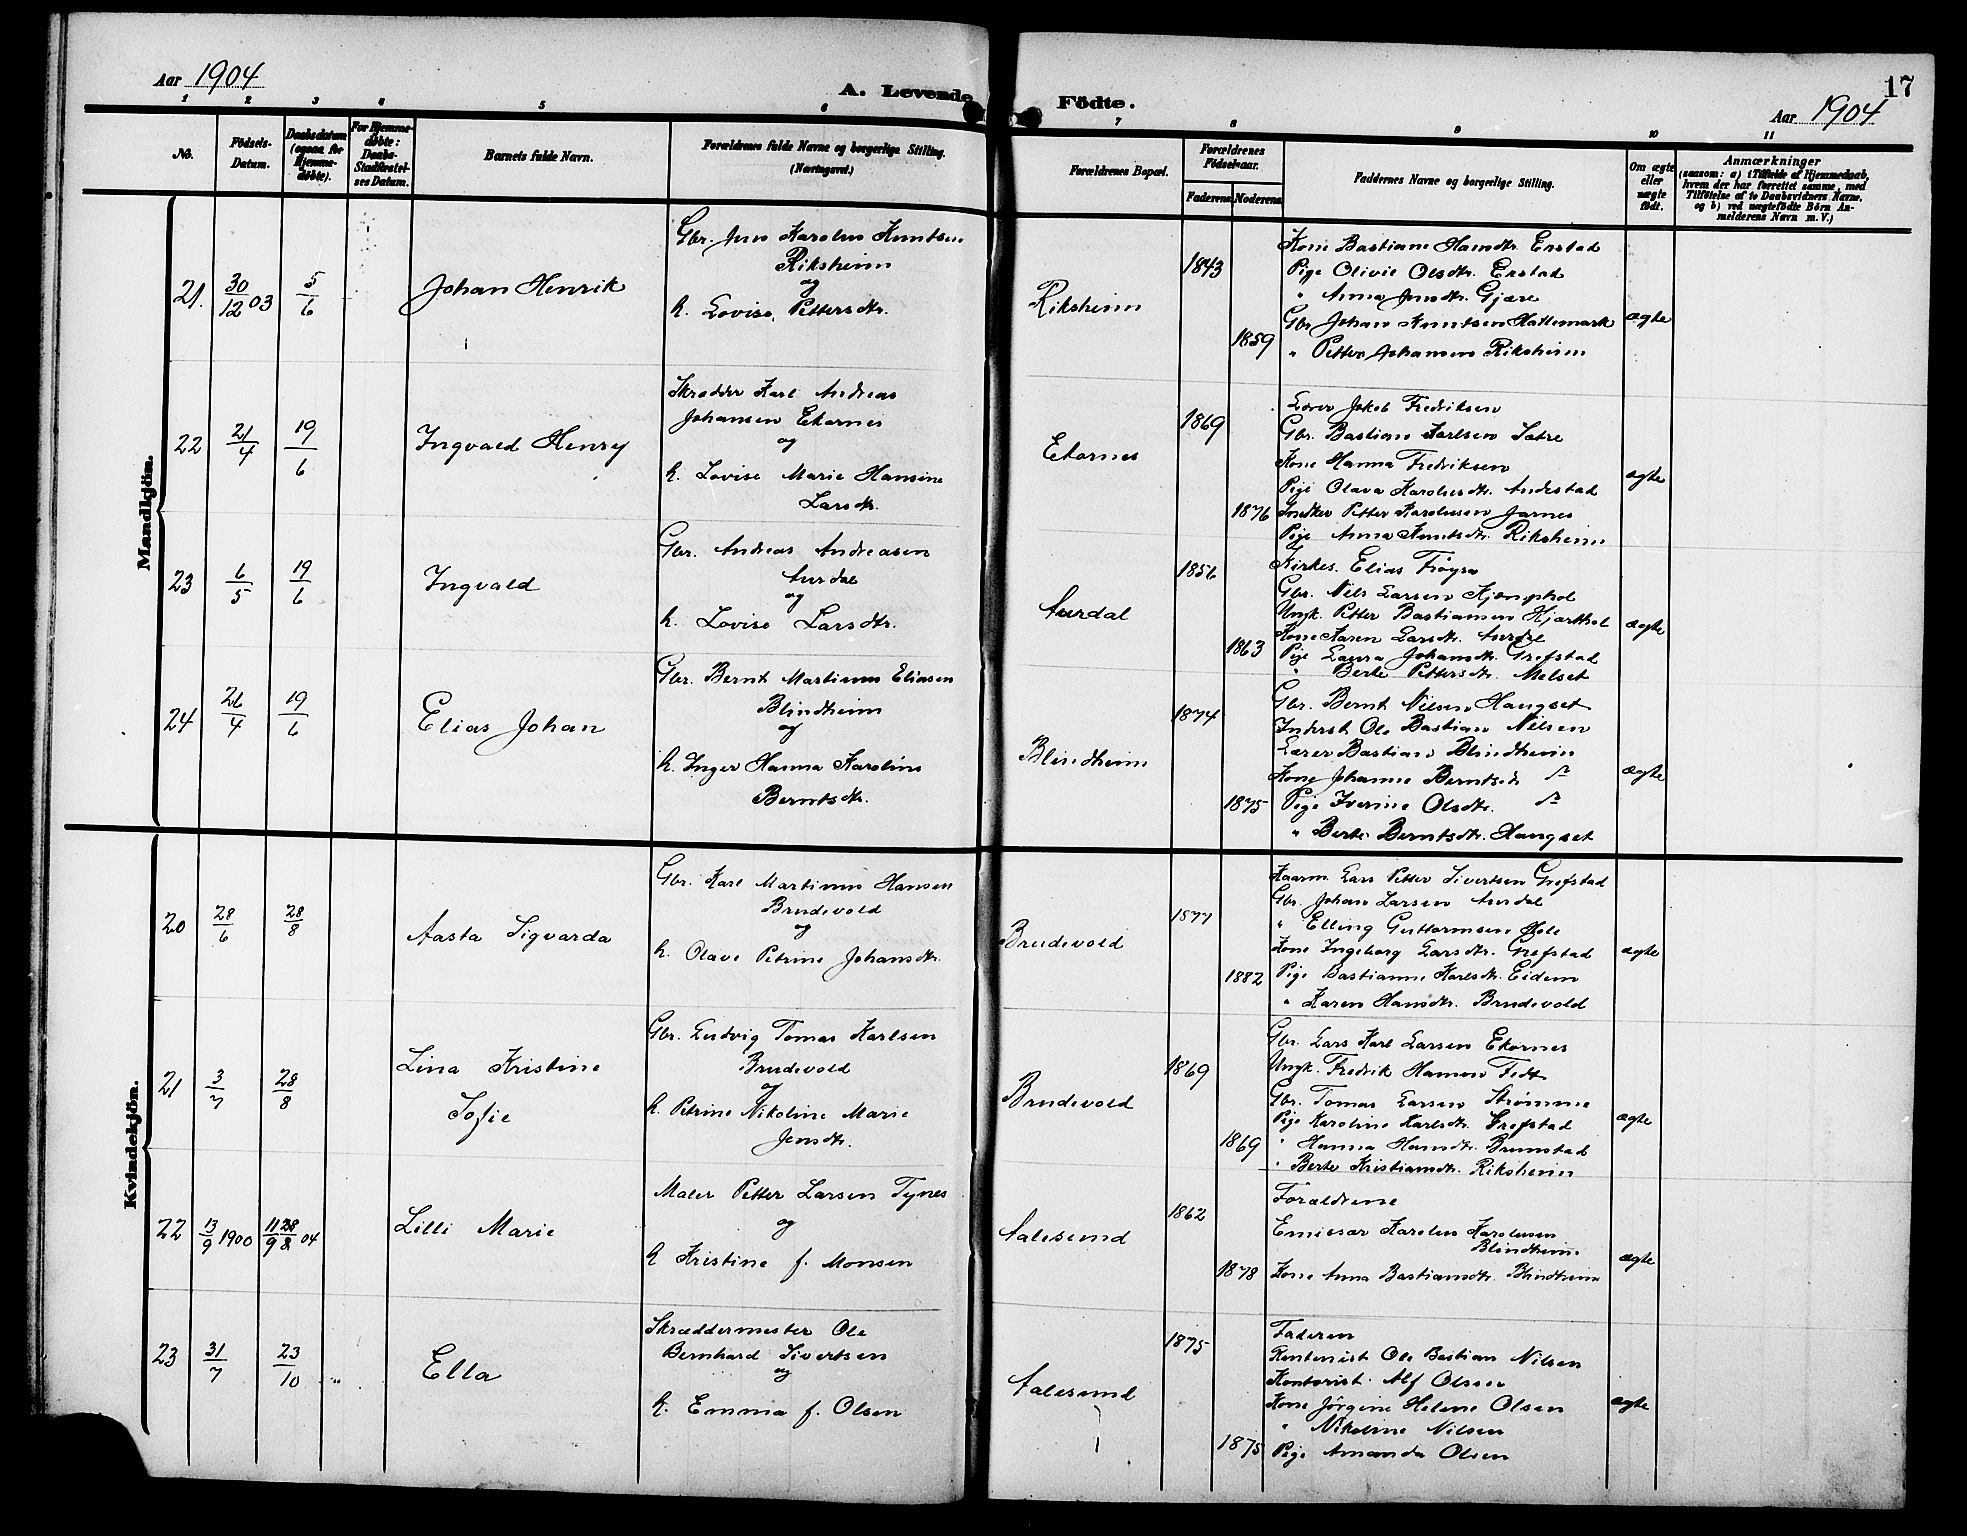 Aar 1904
A. Levende Födte.
17
Aar 1904
1 2 3 4 5 6 7 8 9 10 11
No.
Födsels-Datum.
Daabsdatum (ogsaa for Hjemmedøbte).
For Hjemmedøbte: Daabs-Stadfæstelses Datum.
Barnets fulde Navn.
Forældrenes fulde Navne og borgerlige Stilling. (Næringsvei.)
Forældrenes Bopæl.
Forældrenes Födselsaar.
Faderens Moderens
Faddernes Navne og borgerlige Stilling.
Om ægte eller uægte födt.
Anmærkninger
(saasom: a) i Tilfælde af Hjemmedaab, hvem der har forrettet samme, med Tilföielse af to Daabsvidners Navne, og b) ved uægtefödte Börn Anmelderens Navn m. V.)
Mandkjön.
21. 30/12 03 5/6 Johan Henrik
Gbr. Jens Karolus Knutsen
Riksheim
og
h. Lovise Pettersdtr.
Riksheim
1843
1859
Kone Bastiane Hansdtr. Erstad
Pige Olivie Olsdtr. Erstad
" Anna Jensdtr. Gjære
Gbr. Johan Knutsen Hattemark
" Petter Johansen Riksheim
ægte
22 21/4 19/6 Ingvald Henry
Skrædder Karl Andreas
Johansen Ekornes
og
h. Lovise Marie Hansine
Larsdtr.
Ekornes
1869
1876
Lærer Jakob Fredriksen
Gbr. Bastian Karlsen Sætre
Kone Hanna Fredriksen
Pige Olava Karolusdtr. Andestad
Snedker Petter Karolusen Jarnes
Pige Anna Knutsdtr. Riksheim
ægte
23 6/5 19/6 Ingvald
Gbr. Andreas Andreasen
Aurdal
og
h. Lovise Larsdtr.
Aurdal
1856
1863
Kirkes. Elias Frøysa
Gbr. Nils Larsen Kjemphol
Ungk. Petter Bastiansen Hjorthol
Kone Karen Larsdtr. Aurdal
Pige Laura Johansdtr. Grefstad
" Berte Pettersdtr. Melset
ægte
24 26/4 19/6 Elias Johan
Gbr. Bernt Martinus Eliasen
Blindheim
og
h. Inger Hanna Karoline
Berntsdtr.
Blindheim
1874
1875
Gbr. Bernt Nilsen Haugset
Inderst Ole Bastian Nilsen
Lærer Bastian Blindheim
Kone Johanne Berntsdtr.
Pige Iverine Olsdtr.
" Berte Berntsdtr. Haugset
ægte
Kvindekjön.
20 28/6 28/8 Aasta Sigvarda
Gbr. Karl Martinus Hansen
Brudevold
og
h. Olave Petrine Johansdtr.
Brudevold
1877
1882
Kaarm. Lars Petter Sivertsen Grefstad
Gbr. Johan Larsen Aurdal
" Elling Guttormsen Hole
Kone Ingeborg Larsdtr. Grefstad
Pige Bastianne Karlsdtr. Eidem
" Karen Hansdtr. Brudevold
ægte
21 3/7 28/8 Lina Kristine
Sofie
Gbr. Ludvig Tomas Karlsen
Brudevold
og
h. Petrine Nikoline Marie
Jensdtr.
Brudevold
1869
1869
Gbr. Lars Karl Larsen Ekornes
Ungk. Fredrik Hansen Fedt
Gbr. Tomas Larsen Strømme
Pige Karoline Karlsdtr. Grefstad
" Hanna Hansdtr. Brunstad
" Berte Kristiansdtr. Riksheim
ægte
22 13/9 1900 11/9 28/8 04 Lilli Marie
Maler Petter Larsen Tynes
og
h Kristine f. Monsen
Aalesund
1862
1878
Forældrene
Emissær Karolus Karolusen
Blindheim
Kone Anna Bastiansdtr. Blindheim
ægte
23 31/7 23/10 " Ella
Skræddermester Ole
Bernhard Sivertsen
og
h. Emma f. Olsen
Aalesund
1875
1875
Faderen
Rentenist Ole Bastian Nilsen
Kontorist Alf Olsen
Kone Jørgine Helene Olsen
" Nikoline Nilsen
Pige Amanda Olsen
ægte